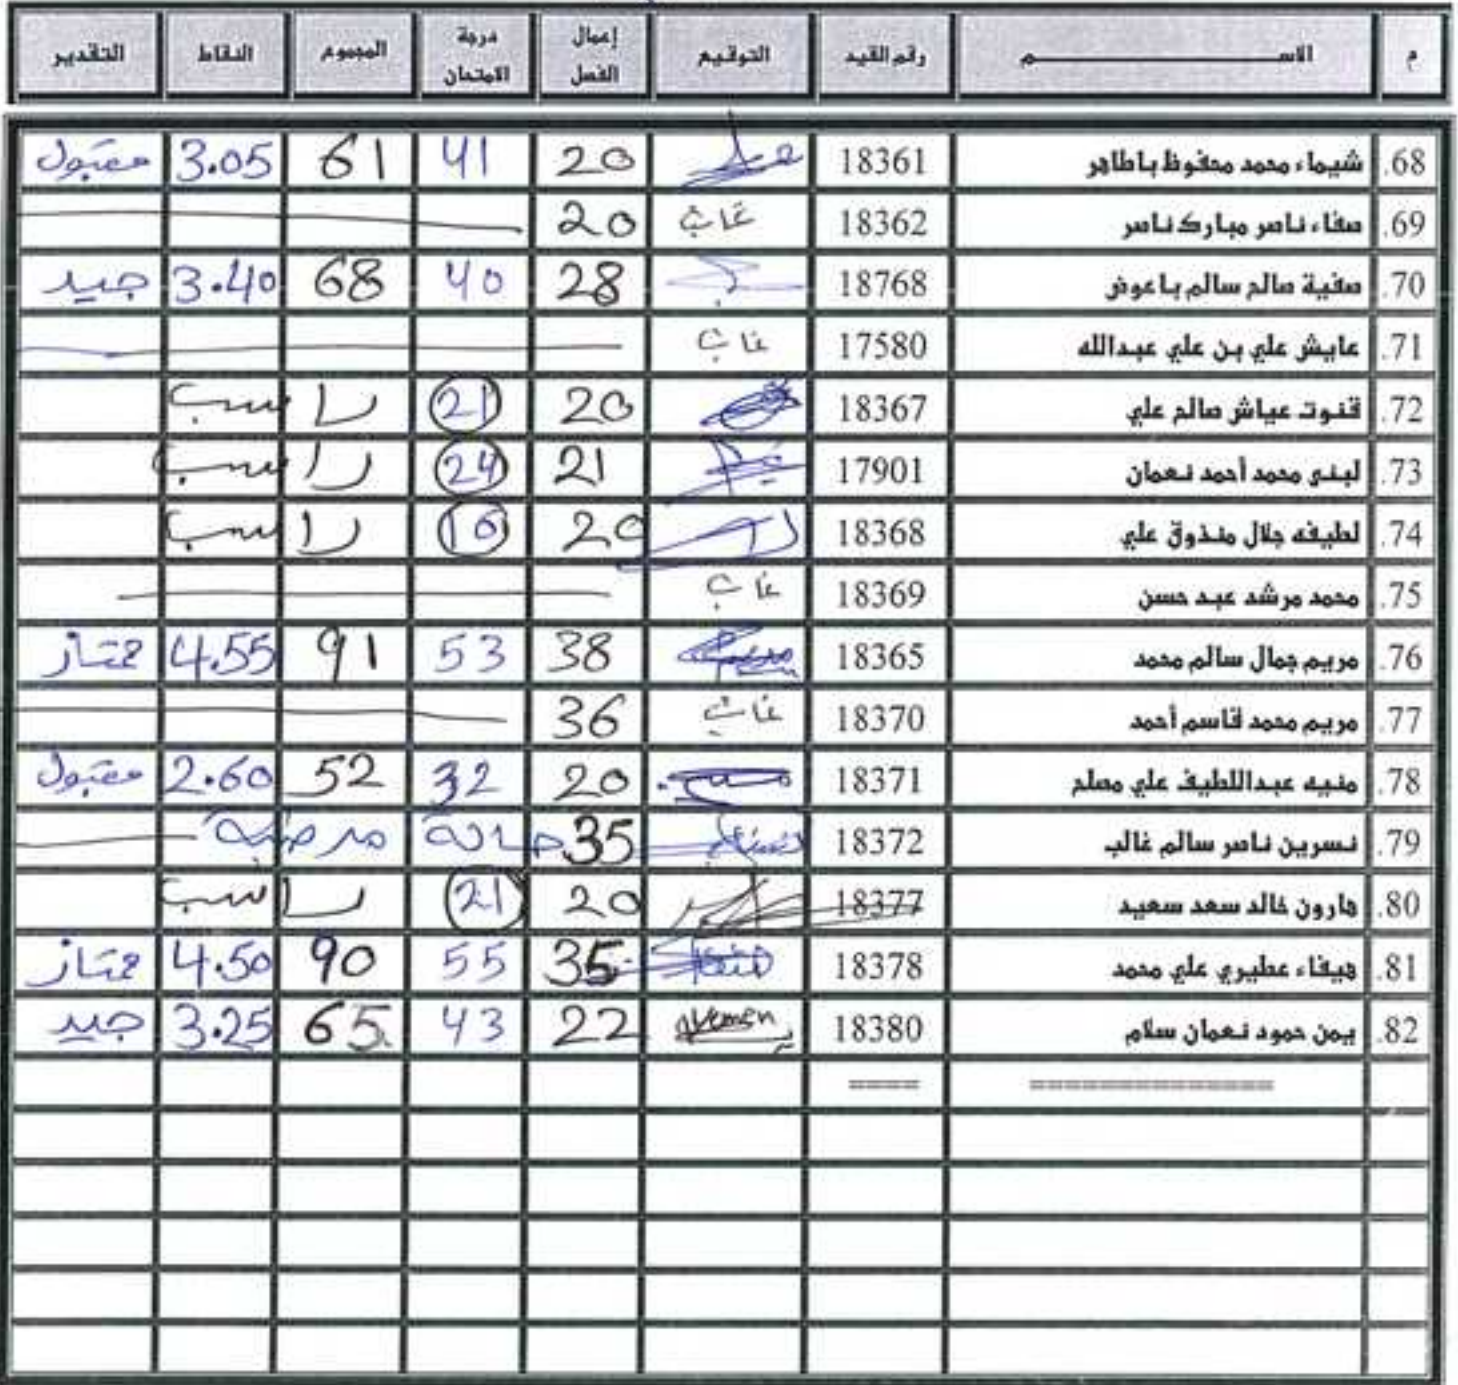 م الاســـــم رقم القيد التوقيع إعمال الفصل درجة الامتحان المجموع النقاط التقدير
68. شيماء محمد محفوظ باطاهر 18361 20 41 61 3.05 مقبول
69. صفاء ناصر مبارك ناصر 18362 غائب 20
70. صفية صالح سالم باعوض 18768 28 40 68 3.40 جيد
71. عايش علي بن علي عبدالله 17580 غائب
72. قنوت عياش صالح علي 18367 20 21 راسب
73. لبنى محمد أحمد نعمان 17901 21 24 راسب
74. لطيفه جلال منذوق علي 18368 20 راسب
75. محمد مرشد عبد حسن 18369 غائب
76. مريم جمال سالم محمد 18365 مريم 38 53 91 4.55 ممتاز
77. مريم محمد قاسم أحمد 18370 غائب 36
78. منيه عبداللطيف علي مصلح 18371 20 32 52 2.60 مقبول
79. نسرين ناصر سالم غالب 18372 35 حالة مرضية
80. هارون خالد سعد سعيد 18377 20 21 راسب
81. هيفاء عطيري علي محمد 18378 35 55 90 4.50 ممتاز
82. يمن حمود نعمان سلام 18380 yemen 22 43 65 3.25 جيد
============== ====